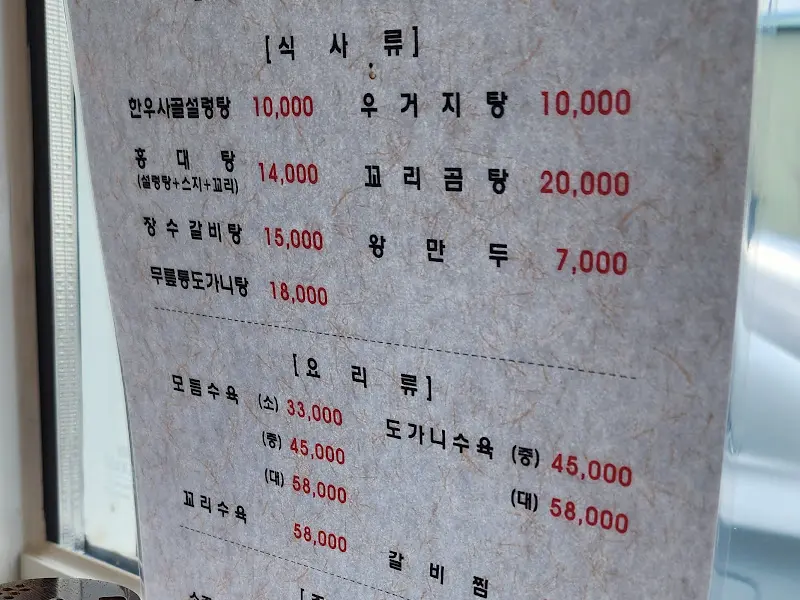 [식 사 류]
한우사골설렁탕 10,000 우 거 지 탕 10,000
홍 대 탕 14,000 꼬 리 곰 탕 20,000
(설렁탕+스지+꼬리)
장 수 갈 비 탕 15,000 왕 만 두 7,000
무릎통도가니탕 18,000
[요 리 류]
모듬수육 (소) 33,000 도가니수육 (중) 45,000
(중) 45,000 (대) 58,000
(대) 58,000
꼬리수육 58,000
갈 비 찜